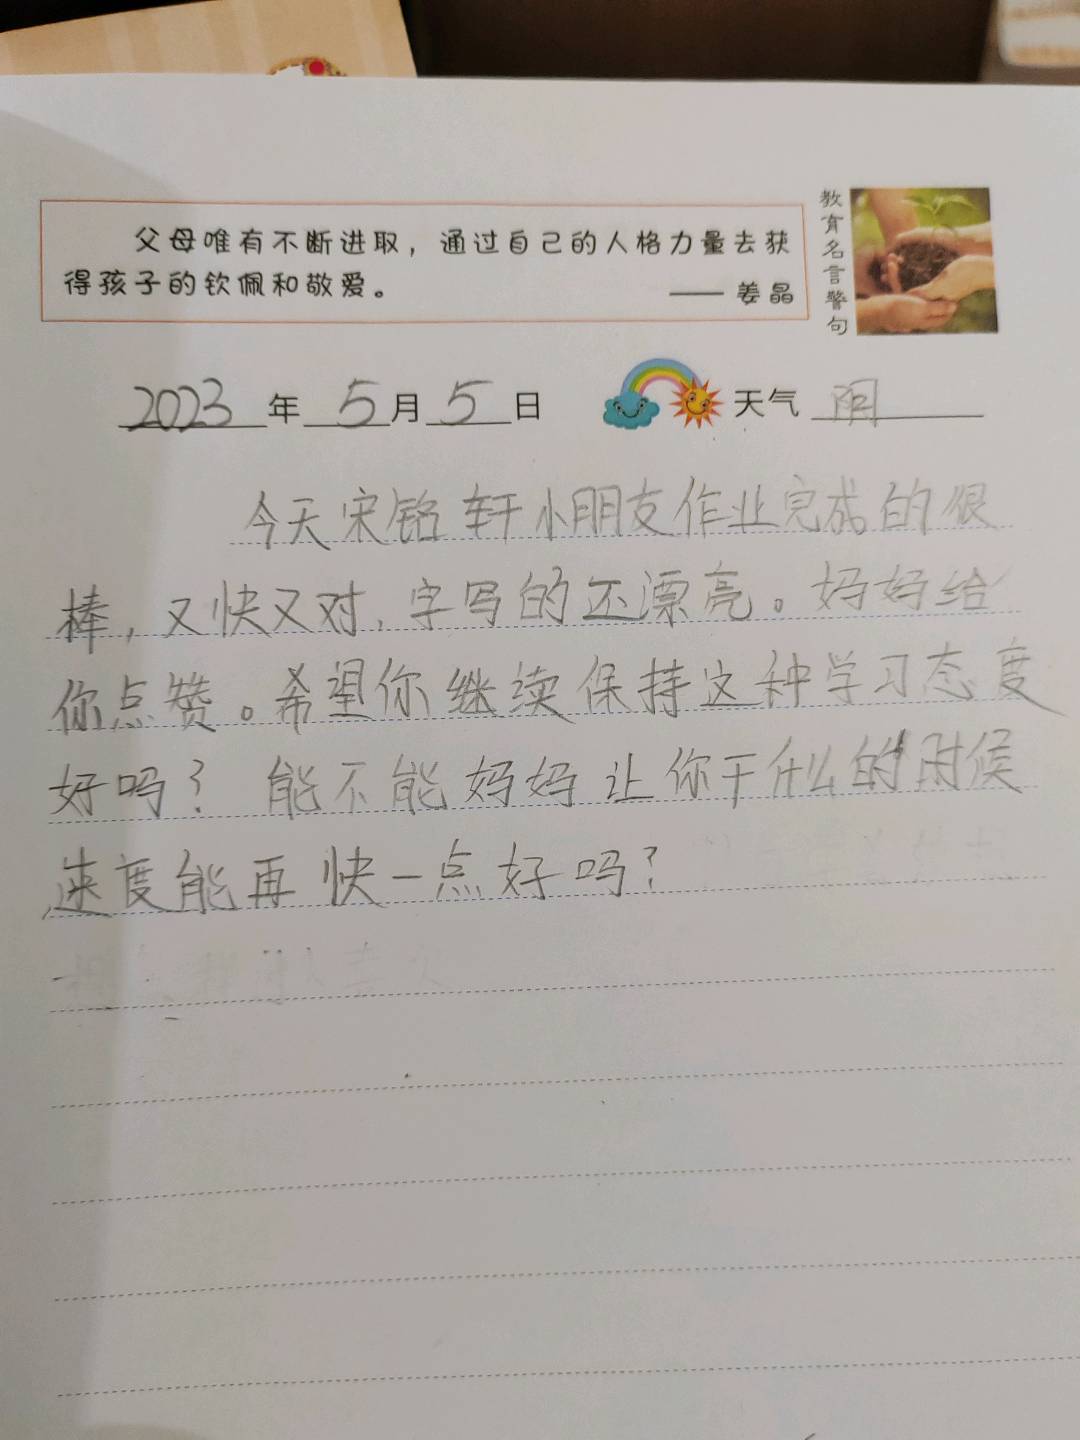 父母唯有不断进取，通过自己的人格力量去获
得孩子的钦佩和敬爱。
—— 姜晶
教育名言警句
2023年5月5日 天气 阴
今天宋铭轩小朋友作业完成的很
棒，又快又对，字写的还漂亮。妈妈给
你点赞。希望你继续保持这种学习态度
好吗？能不能妈妈让你干什么的时候
速度能再快一点好吗？